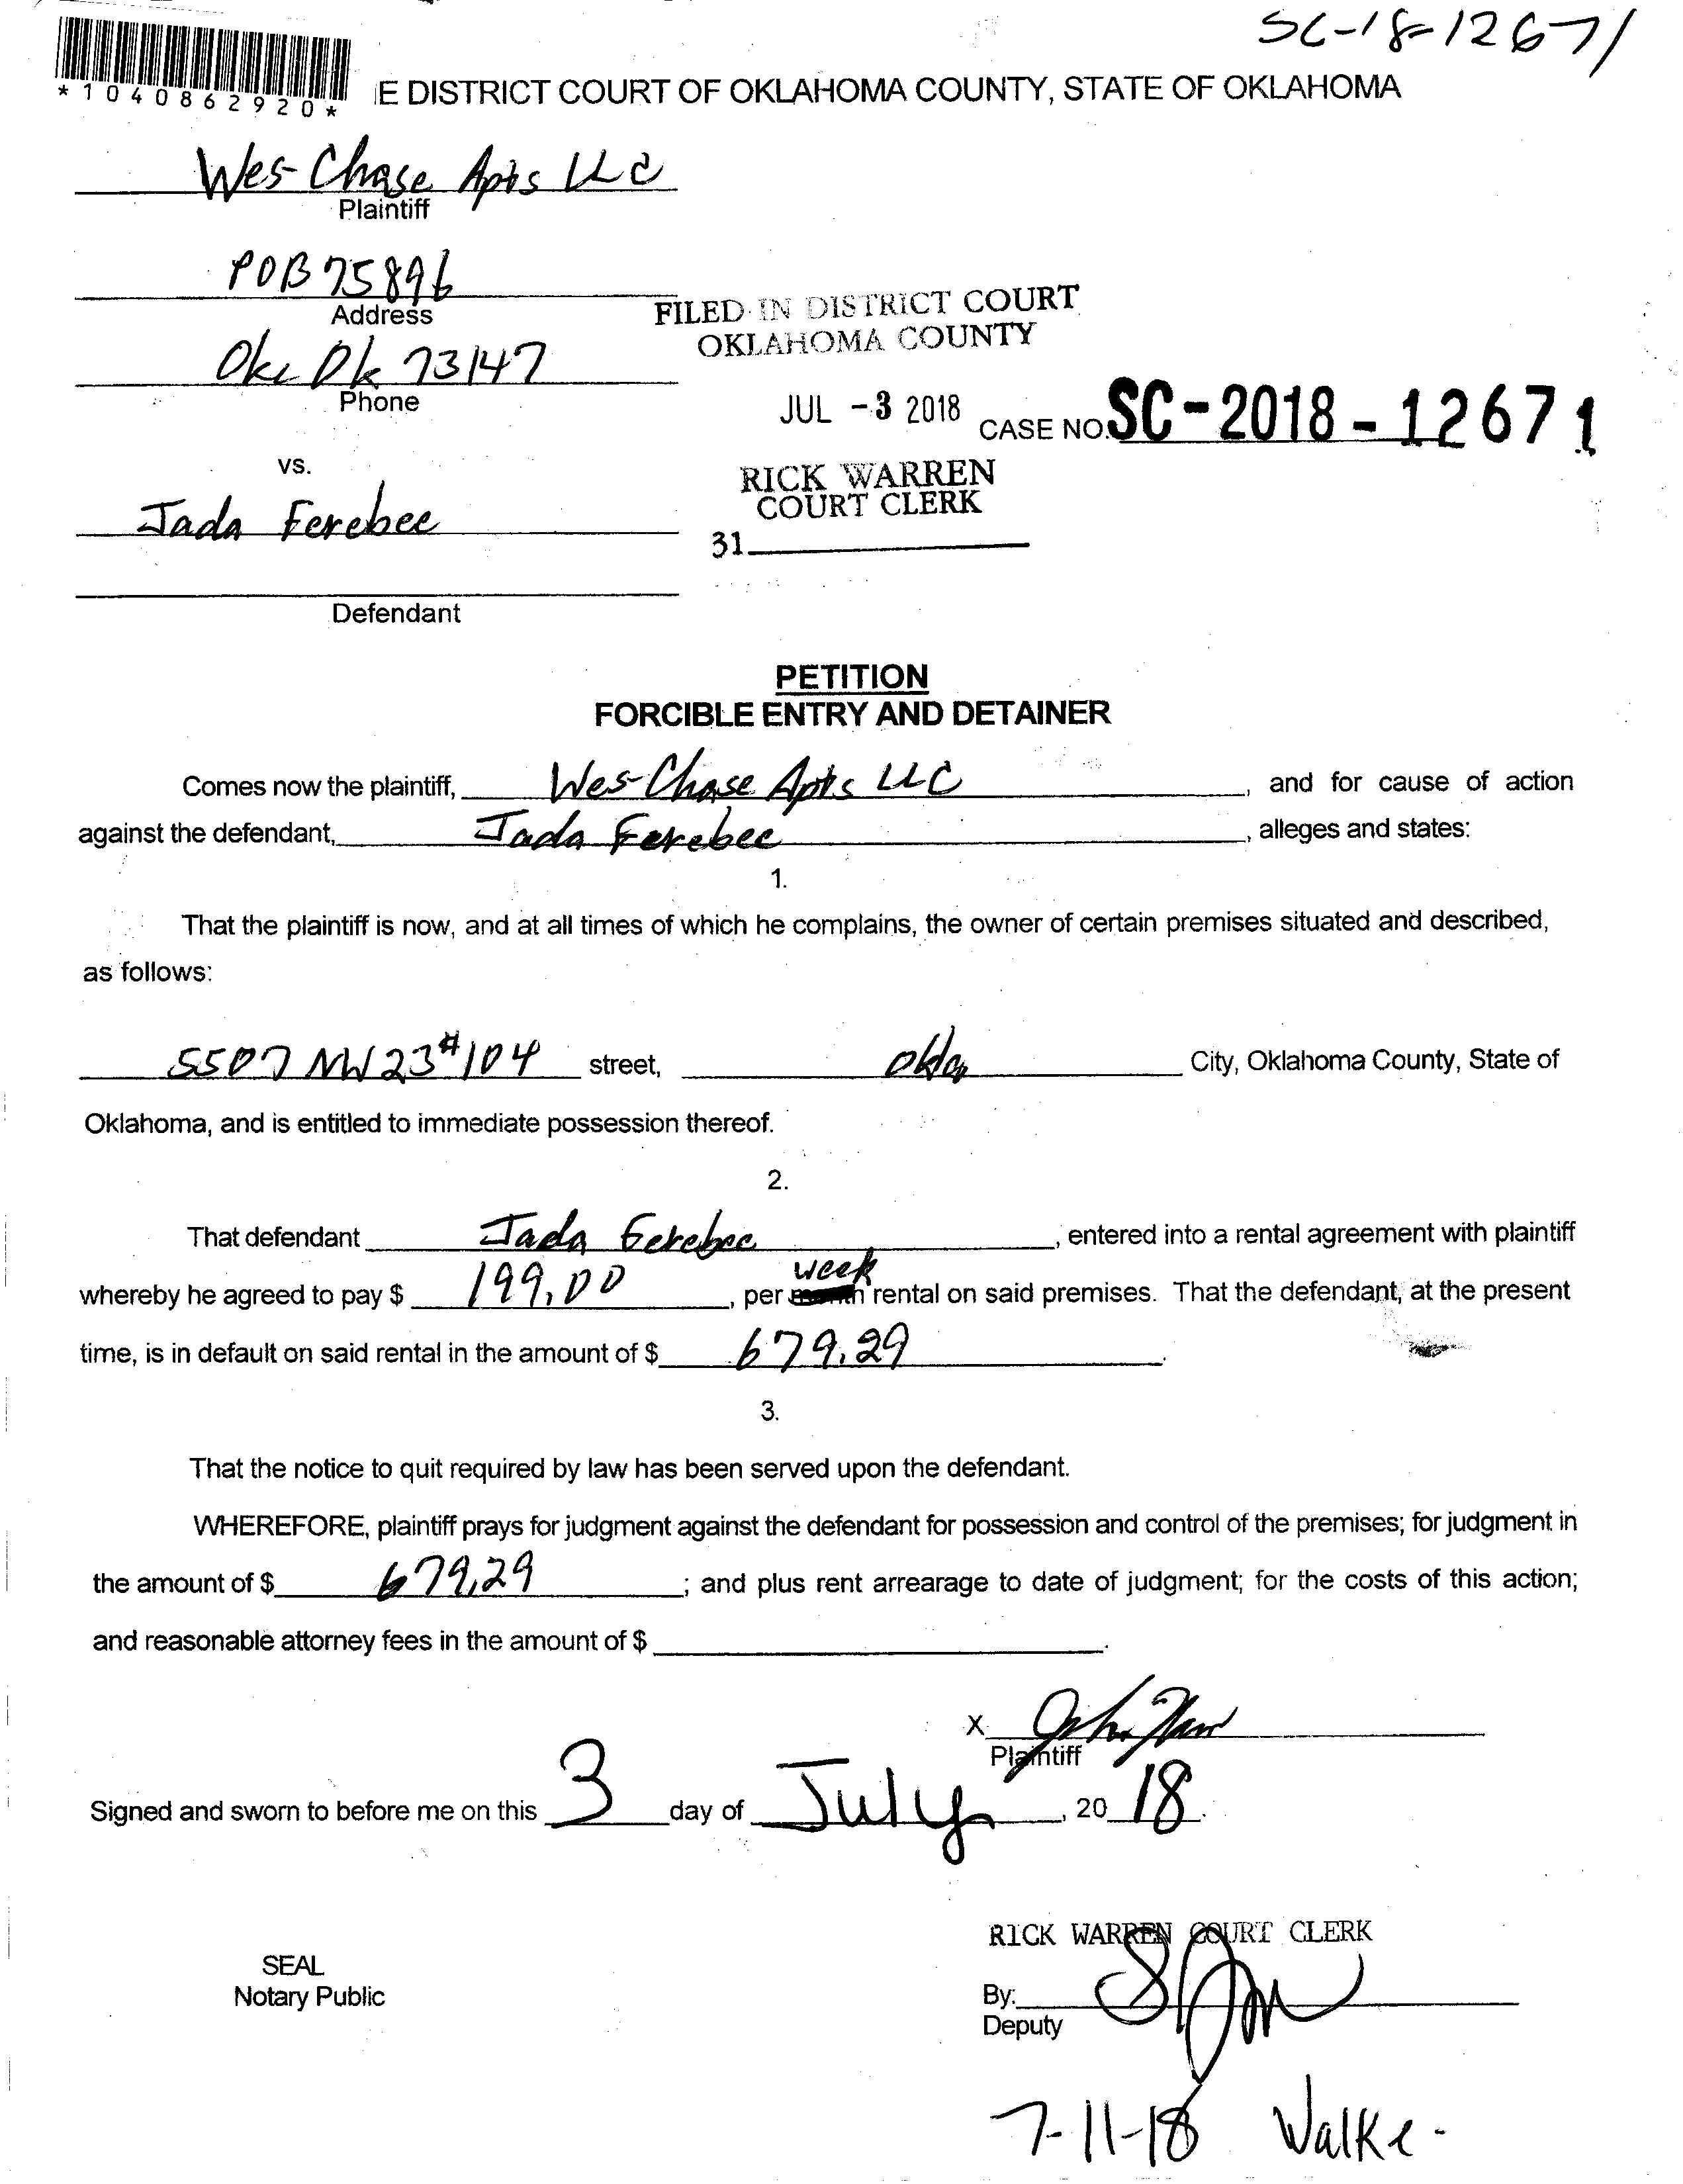 SC-18-12671
*1040862920*
E DISTRICT COURT OF OKLAHOMA COUNTY, STATE OF OKLAHOMA
Wes-Chase Apts LLC
Plaintiff
POB 75896
Address
FILED IN DISTRICT COURT
OKLAHOMA COUNTY
Okc Ok 73147
Phone
JUL -3 2018
CASE NO. SC-2018-12671
vs.
RICK WARREN
COURT CLERK
Jada Ferebee
31
Defendant
PETITION
FORCIBLE ENTRY AND DETAINER
Comes now the plaintiff, Wes-Chase Apts LLC, and for cause of action
against the defendant, Jada Ferebee, alleges and states:
1.
That the plaintiff is now, and at all times of which he complains, the owner of certain premises situated and described,
as follows:
5507 NW 23 #104 street, okla City, Oklahoma County, State of
Oklahoma, and is entitled to immediate possession thereof.
2.
That defendant Jada Ferebee, entered into a rental agreement with plaintiff
week
whereby he agreed to pay $ 199.00, per month rental on said premises. That the defendant, at the present
time, is in default on said rental in the amount of $ 679.29.
3.
That the notice to quit required by law has been served upon the defendant.
WHEREFORE, plaintiff prays for judgment against the defendant for possession and control of the premises; for judgment in
the amount of $ 679.29; and plus rent arrearage to date of judgment; for the costs of this action;
and reasonable attorney fees in the amount of $.
X John
Plaintiff
Signed and sworn to before me on this 3 day of July, 2018.
RICK WARREN COURT CLERK
SEAL
Notary Public
By:
Deputy
7-11-18 Walke-